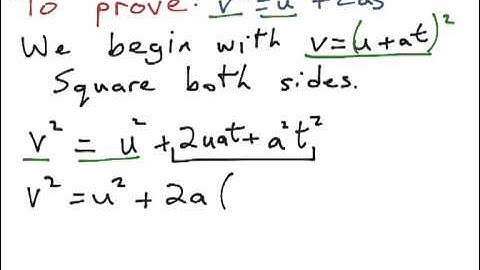 To prove: v² = u² + 2as
We begin with v=(u+at)²
Square both sides.
v² = u² + 2uat + a²t²
v² = u² + 2a (